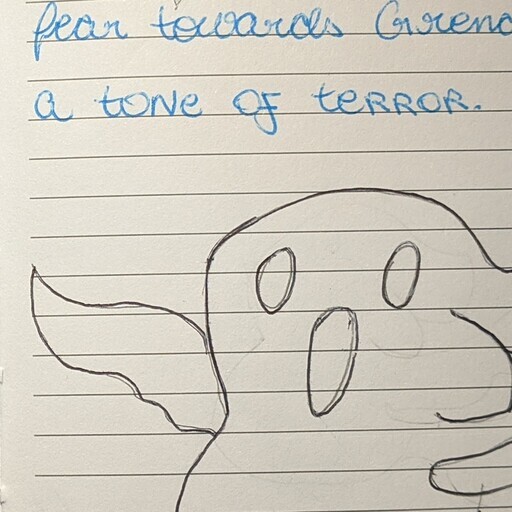 fear towards Grend
a tone of terror.